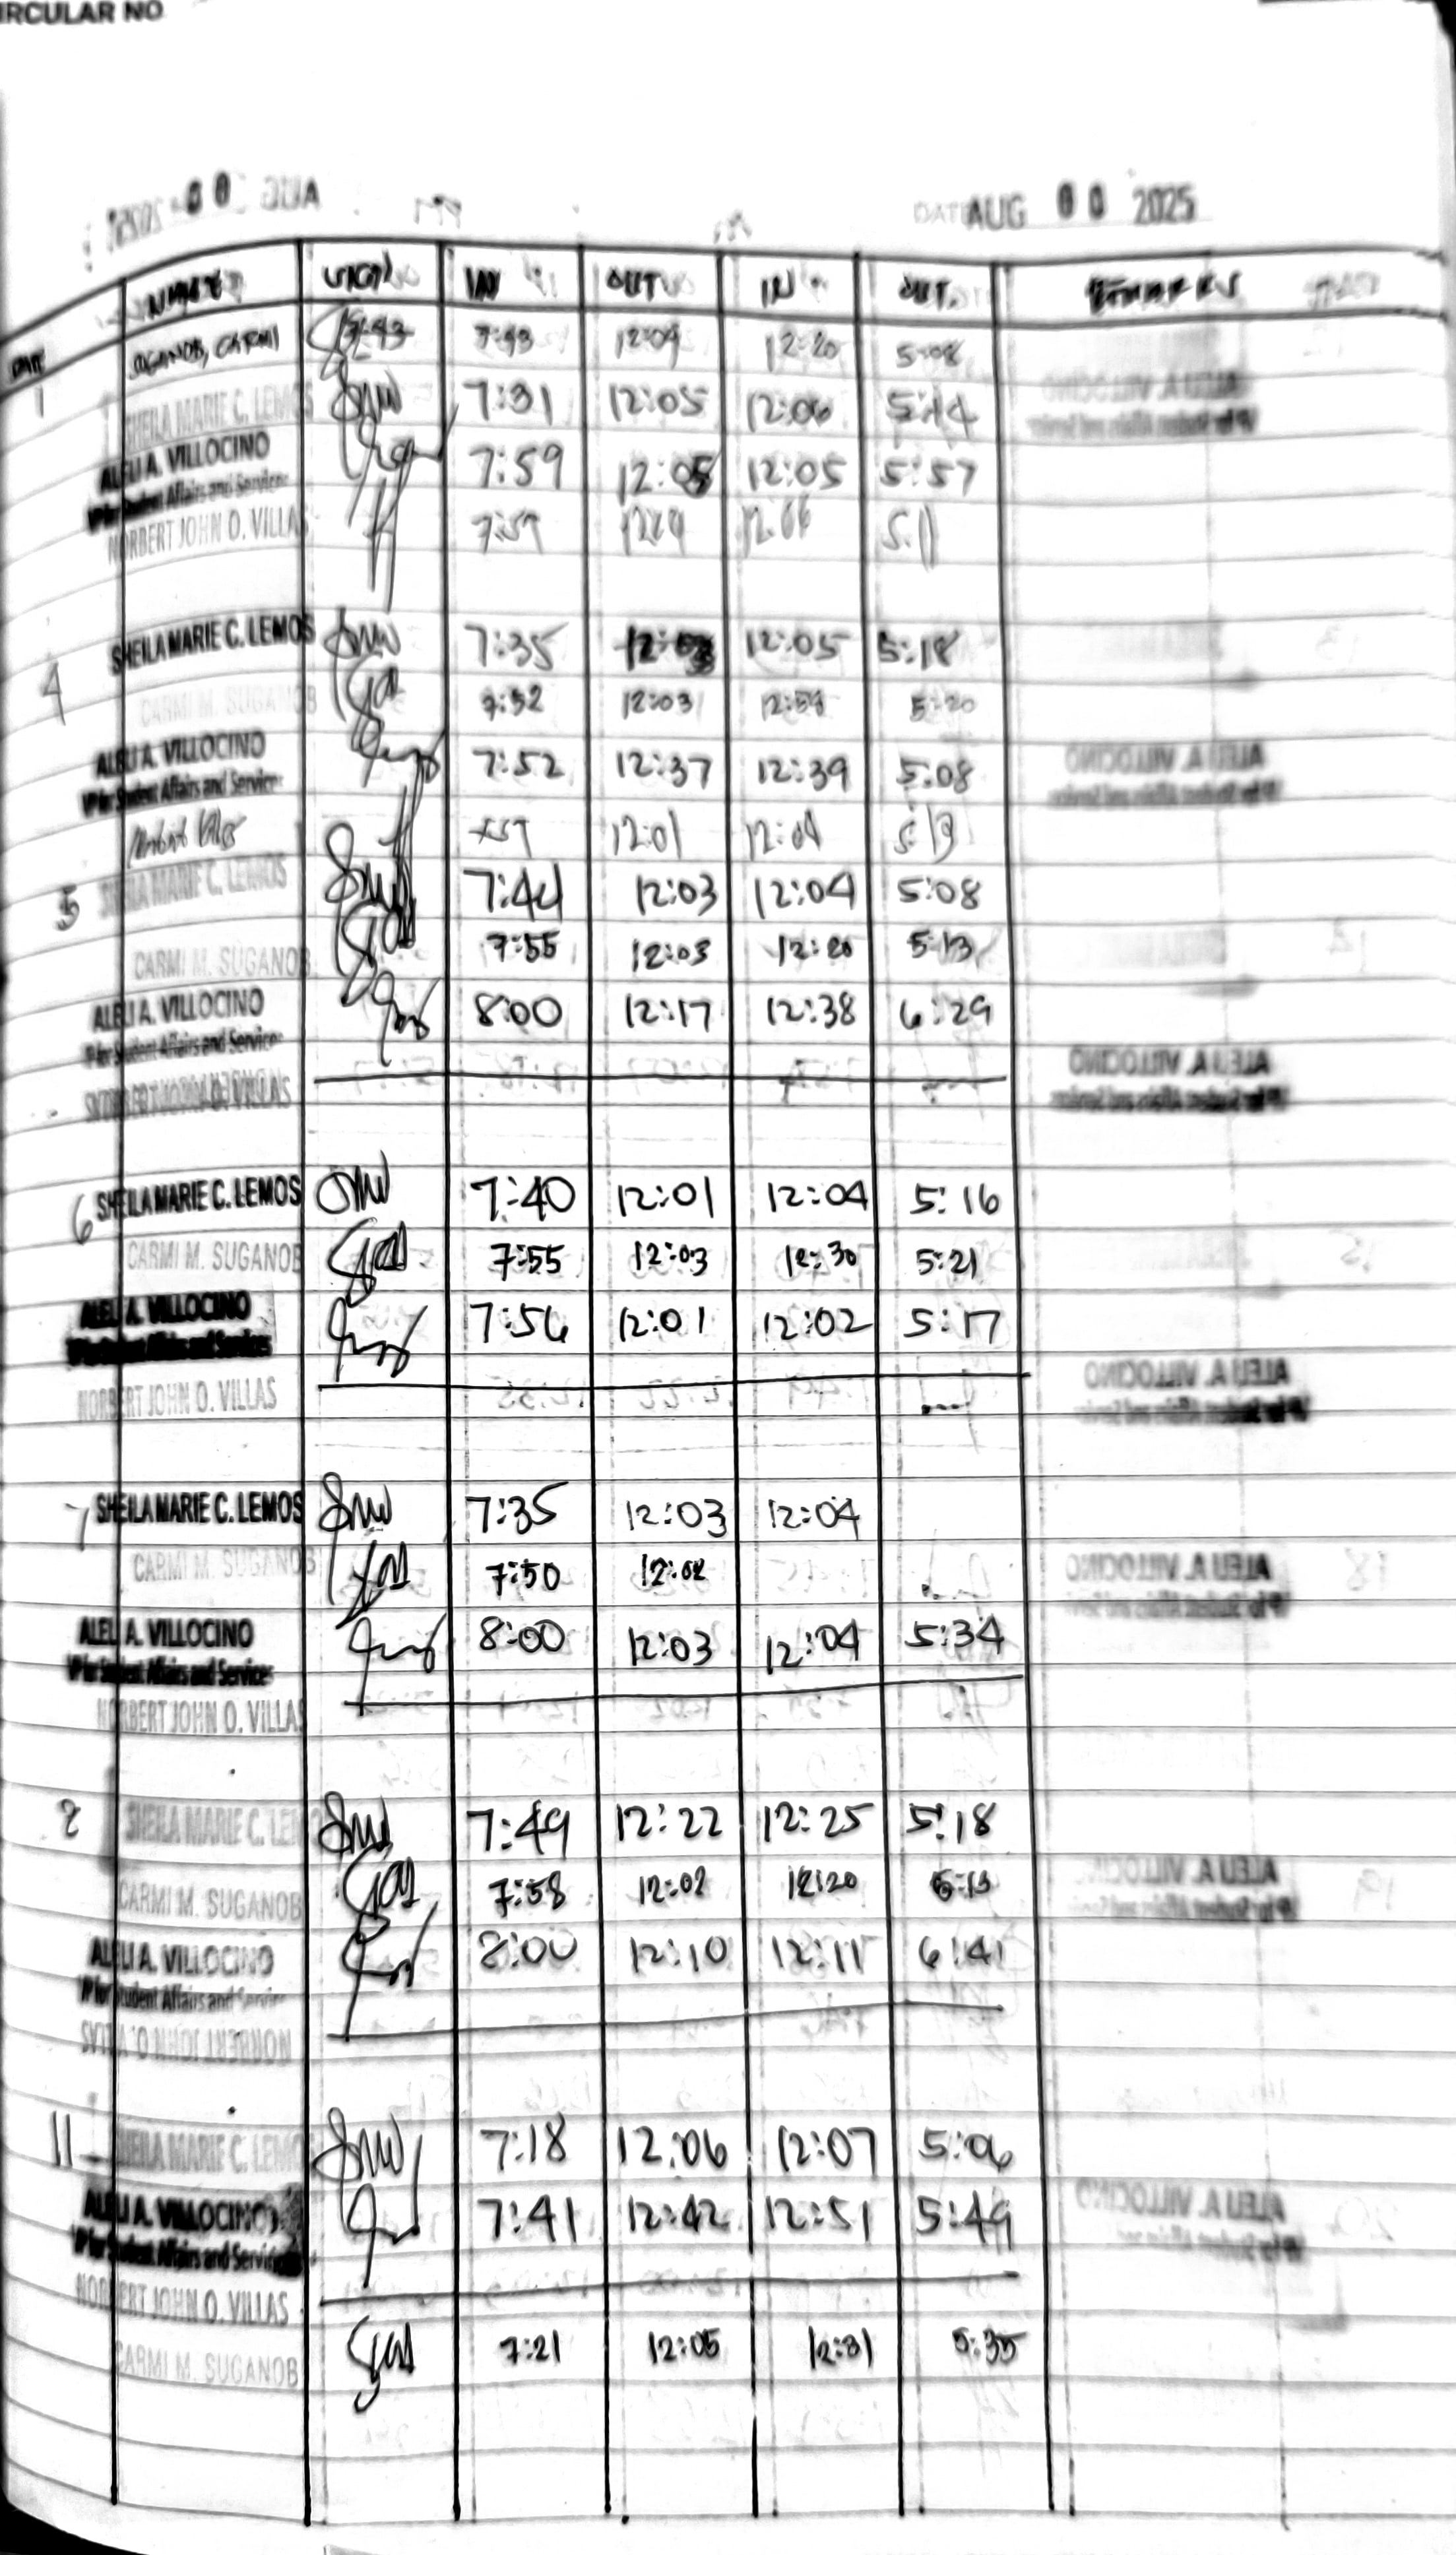 CIRCULAR NO
AUG 00 2025
DATE NAME SIGN IN OUT IN OUT REMARKS
1 SUGANOB, CARMI 7:43 12:09 12:20 5:08
SHEILA MARIE C. LEMOS 7:31 12:05 12:06 5:14
ALELI A. VILLOCINO 7:59 12:05 12:05 5:57
VP for Student Affairs and Services
NORBERT JOHN O. VILLAS 7:57 5:11
4 SHEILA MARIE C. LEMOS 7:35 12:03 12:05 5:18
CARMI M. SUGANOB 7:52 12:03 12:59 5:20
ALELI A. VILLOCINO 7:52 12:37 12:39 5:08
VP for Student Affairs and Services
12:01 12:04 5:13
5 SHEILA MARIE C. LEMOS 7:44 12:03 12:04 5:08
CARMI M. SUGANOB 7:55 12:03 12:20 5:13
ALELI A. VILLOCINO 8:00 12:17 12:38 6:29
VP for Student Affairs and Services
6 SHEILA MARIE C. LEMOS 7:40 12:01 12:04 5:16
CARMI M. SUGANOB 7:55 12:03 12:30 5:21
ALELI A. VILLOCINO 7:56 12:01 12:02 5:17
VP for Student Affairs and Services
NORBERT JOHN O. VILLAS
7 SHEILA MARIE C. LEMOS 7:35 12:03 12:04
CARMI M. SUGANOB 7:50 12:02
ALELI A. VILLOCINO 8:00 12:03 12:04 5:34
VP for Student Affairs and Services
NORBERT JOHN O. VILLAS
8 SHEILA MARIE C. LEMOS 7:49 12:22 12:25 5:18
CARMI M. SUGANOB 7:58 12:02 12:20 5:13
ALELI A. VILLOCINO 8:00 12:10 12:11 6:41
VP for Student Affairs and Services
NORBERT JOHN O. VILLAS
11 SHEILA MARIE C. LEMOS 7:18 12:06 12:07 5:06
ALELI A. VILLOCINO 7:41 12:42 12:51 5:49
VP for Student Affairs and Services
NORBERT JOHN O. VILLAS
CARMI M. SUGANOB 7:21 12:05 12:31 5:35